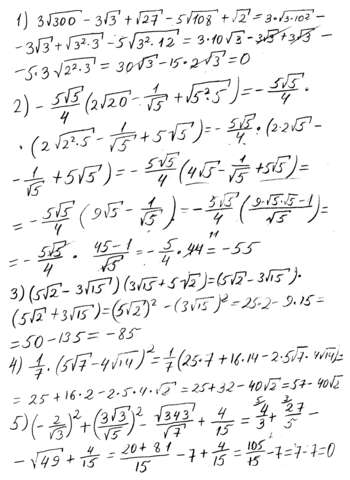 1) 3√300 - 3√3 + √27 - 5√108 + √2 = 3·√3·10² -
- 3√3 + √3²·3 - 5√3²·12 = 3·10√3 - 3√3 + 3√3 -
- 5·3√2²·3 = 30√3 - 15·2√3 = 0
2) - 5√5/4 (2√20 - 1/√5 + √5²·5) = - 5√5/4 ·
· (2√2²·5 - 1/√5 + 5√5) = - 5√5/4 · (2·2√5 -
- 1/√5 + 5√5) = - 5√5/4 (4√5 - 1/√5 + 5√5) =
= - 5√5/4 (9√5 - 1/√5) = - 5√5/4 (9·√5·√5-1/√5) =
= - 5√5/4 · 45-1/√5 = - 5/4 · 44 11 = -55
3) (5√2 - 3√15)(3√15 + 5√2) = (5√2 - 3√15)·
(5√2 + 3√15) = (5√2)² - (3√15)² = 25·2 - 9·15 =
= 50 - 135 = -85
4) 1/7 · (5√7 - 4√14)² = 1/7 (25·7 + 16·14 - 2·5√7·4√14) =
= 25 + 16·2 - 2·5·4·√2 = 25 + 32 - 40√2 = 57 - 40√2
5) (- 2/√3)² + (3√3/√5)² - √343/√7 + 4/15 = 5 4/3 + 3 27/5 -
- √49 + 4/15 = 20+81/15 - 7 + 4/15 = 105/15 - 7 = 7 - 7 = 0